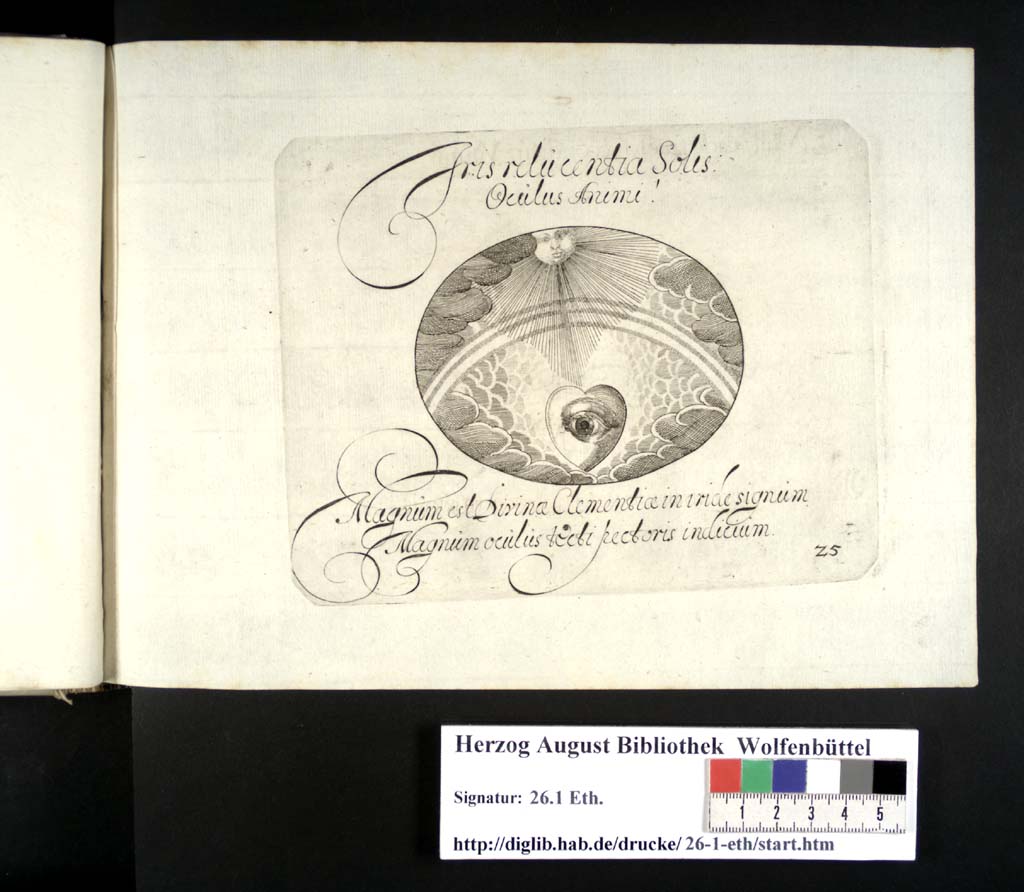 Iris relùcentia Solis.
Ocùlus Animi!
Magnùm est Divinæ Clementiæ in iride signùm
Magnùm ocùlus tecti pectoris indiciùm.
25
Herzog August Bibliothek Wolfenbüttel
Signatur: 26.1 Eth.
1 2 3 4 5
http://diglib.hab.de/drucke/ 26-1-eth/start.htm